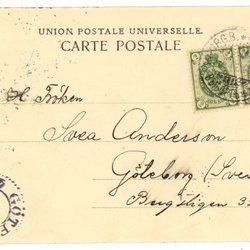 UNION POSTALE UNIVERSELLE.
CARTE POSTALE
Fröken
Svea Anderson
Göteborg (Sve
Bergstigen 3